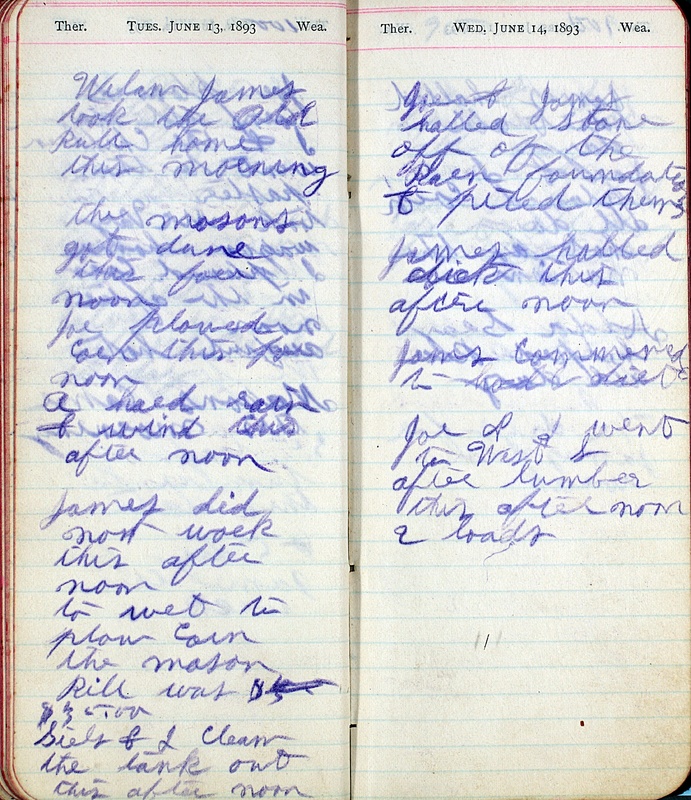 Ther. TUES. JUNE 13, 1893 Wea.
James
took the Old
home
this morning
the masons
got dane
this fore
noon
Joe plowed
Corn this fore
noon
A hard rain
& wind this
after noon
James did
not work
this after
noon
to wet to
plow Corn
the mason
Bill was
$35.00
& I Clean
the tank out
this after noon
Ther. WED. JUNE 14, 1893 Wea.
Joe & James
halled Stone
off of the
Baen foundate
& piled them
James halled
this
after noon
James Commenced
to
Joe & I went
to West L
after lumber
this after noon
2 loads